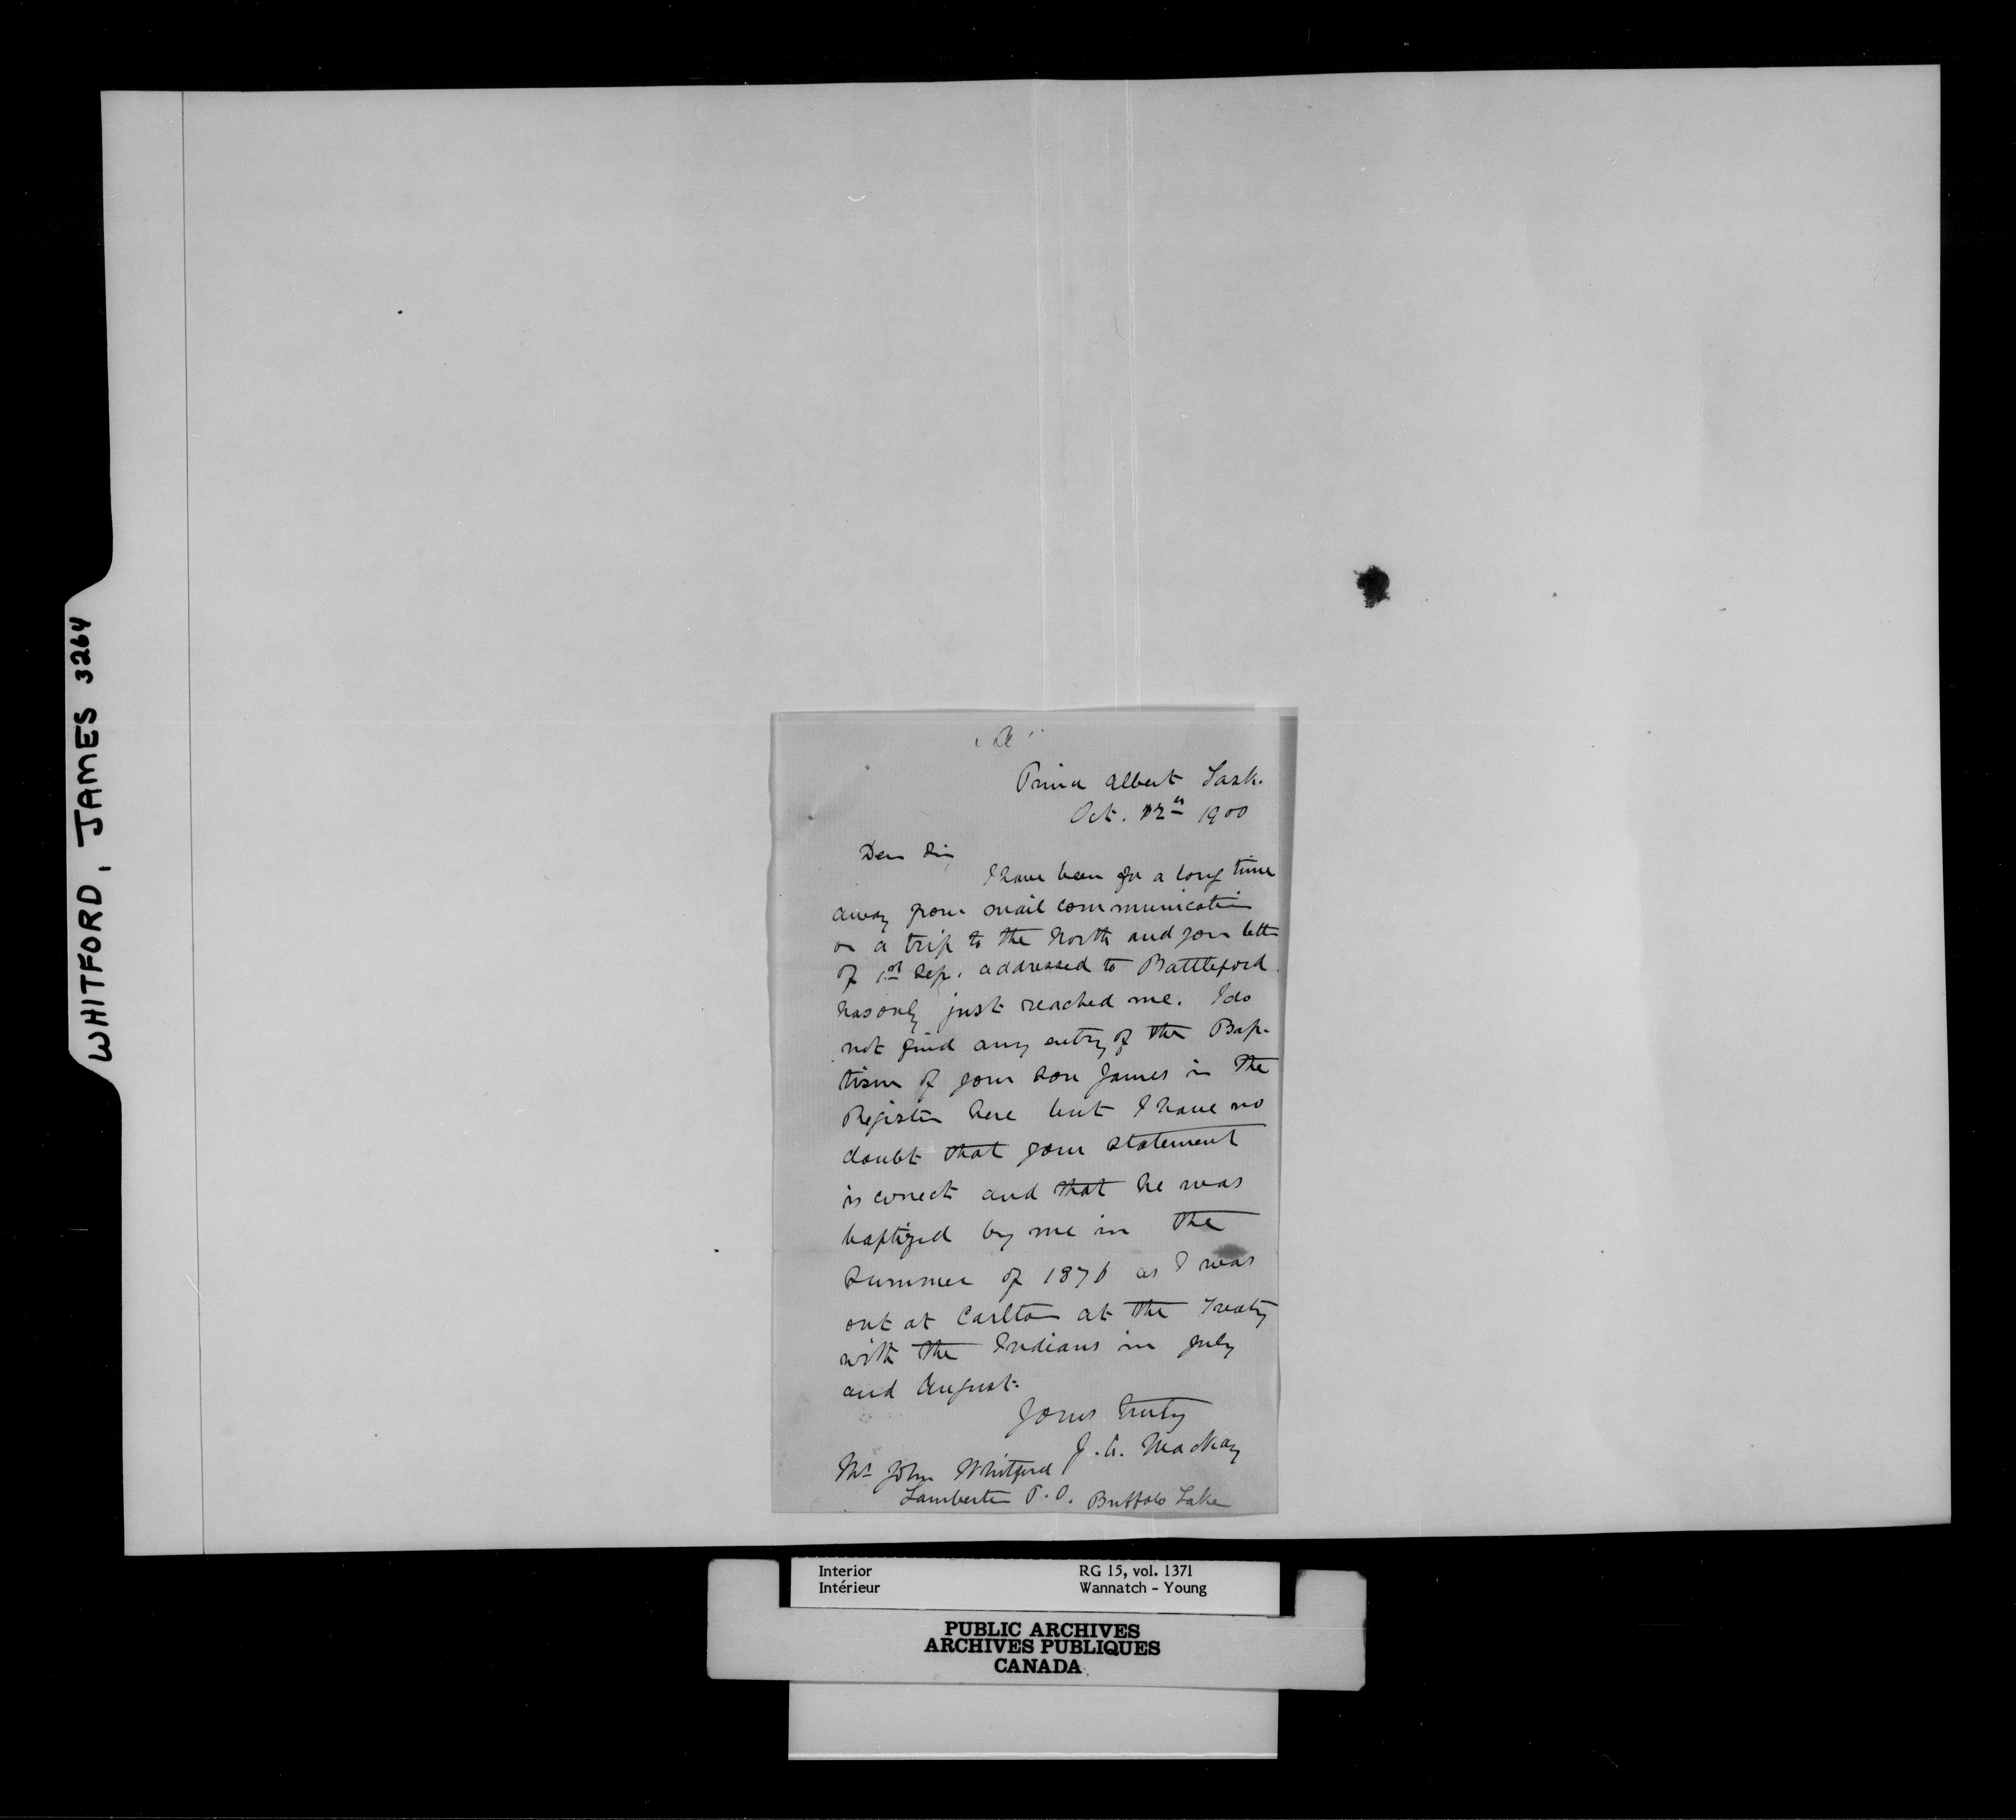 WHITFORD, JAMES 3264
"A"
Prince Albert Sask.
Oct. 12th 1900
Dear Sir
I have been for a long time
away from mail communication
on a trip to the North and your letter
of 1st Sep. addressed to Battleford
has only just reached me. I do
not find any entry of the Bap-
tism of your son James in the
Register here but I have no
doubt that your statement
is correct and that he was
baptized by me in the
summer of 1876 as I was
out at Carlton at the Treaty
with the Indians in July
and August.
Yours truly
J. A. Mackay
Mr John Whitford
Lamberton P.O. Buffalo Lake
Interior RG 15, vol. 1371
Intérieur Wannatch - Young
PUBLIC ARCHIVES
ARCHIVES PUBLIQUES
CANADA